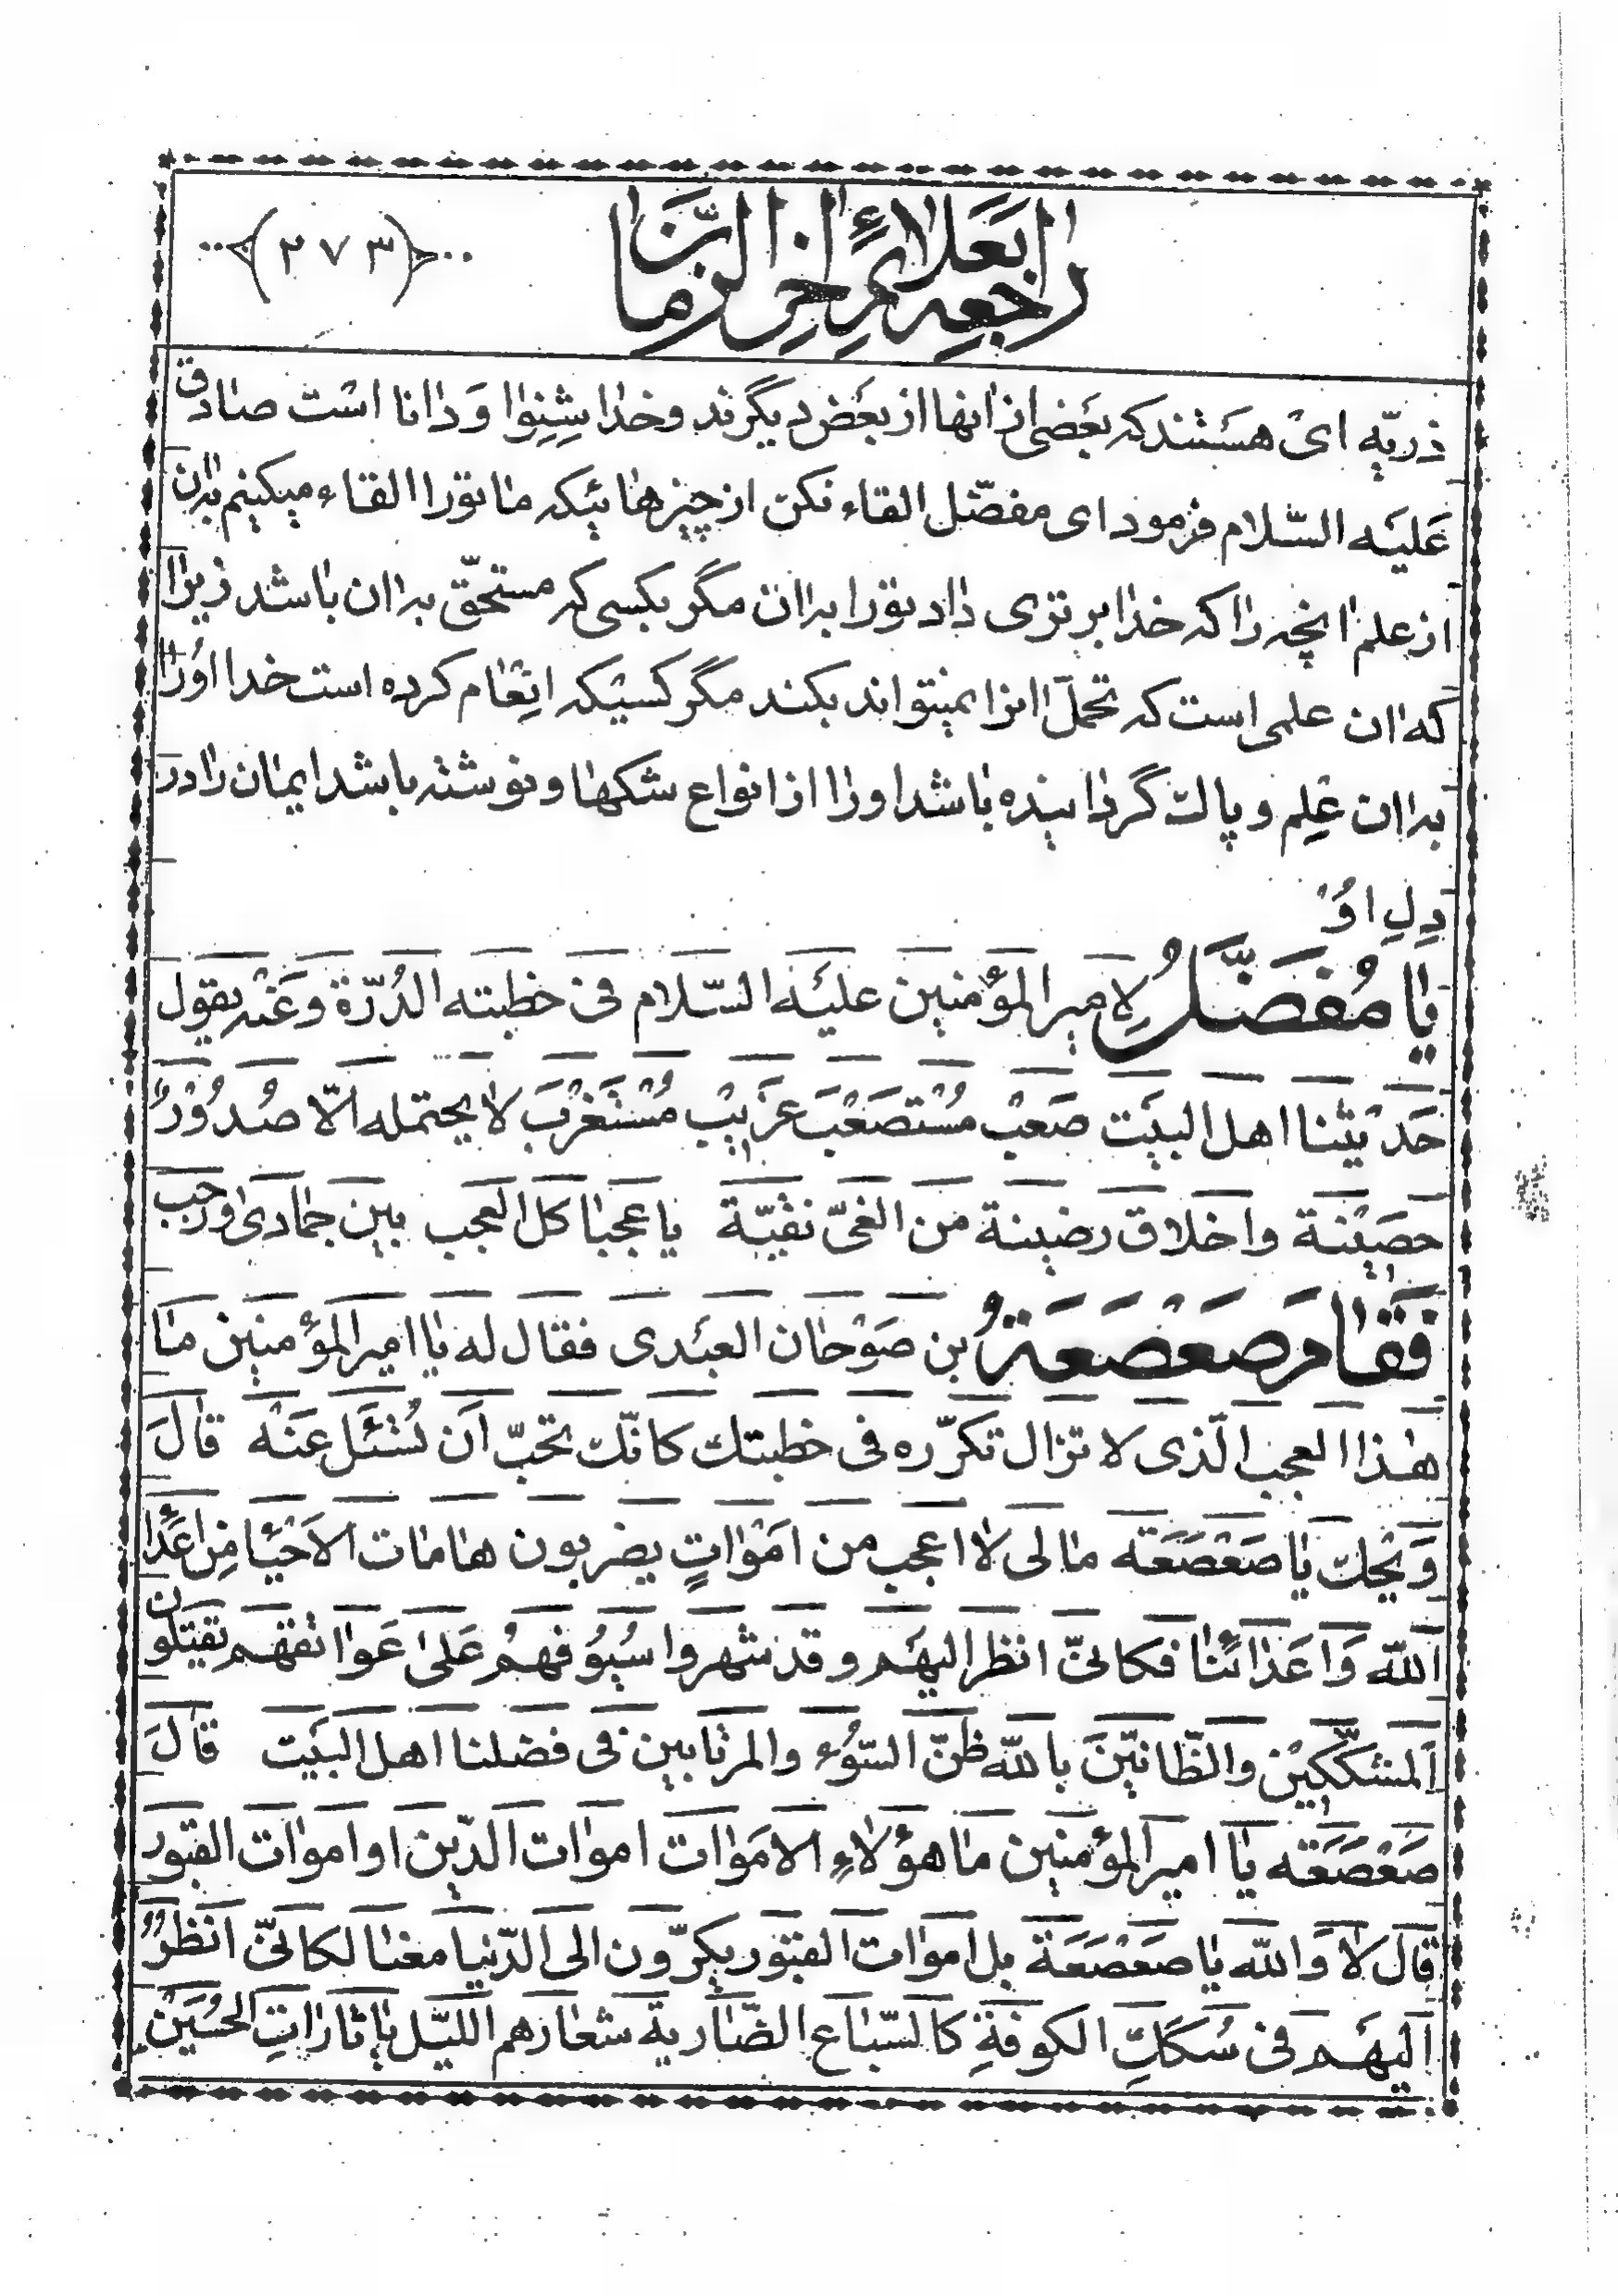 راجعه بعلائم اخر الزمان
(۲۷۳)
ذریّه ای هستند که بعضی از انها از بعض دیگرند و خدا شِنِوا وَ دانا است صادق
عَلیَه السّلام فرمود ای مفضّل القاء نکن از چیزهائیکه ما تورا القاء میکینم بران
از علم انچه را که خدا برتری داد تورا بدان مگر بکسی که مستحقّ بدان باشد زیرا
که ان علمی است که تحمل انرا نمیتواند بکند مگر کسیکه انِعام کرده است خدا اورا
بدان عِلِم و پاک گردانیده باشد اورا از انواع شکها و نوشته باشد ایمان را در
دِلِ اوُ
یا مُفضَّلُ لِامیر المؤمنین علیَه السّلام فی خطبته الدُرّة وعَنه یقول
حَدیثنا اهل البیَت صَعبْ مُسْتصَعْبَ غرَیبْ مُسْتَغرْبَ لا یحتمله الّا صُدوُرْ
حصَینة واخلاق رضینة من الغیّ نقیّة یا عجبا کل العجب بین جمادی ورجب
فَقامَ صَعْصَعَةُ بن صَوْحان العبَدی فقال له یا امیر المؤمنین ما
هذا العجب الّذی لا تزال تکرّره فی خطبتک کانّک تحبّ اَن تُسْئَل عَنه قالَ
وَیْحکَ یا صَعْصَعَة مالی لا اعجب من امَوْاتٍ یضربون هامات الاَحْیَا مِن اَعَدْا
اَللّه وَاعَدٰائَنا فکانیّ انظر الیهَم وقد شهروا سُیوُفهُم عَلی عَواتقهم یقتلون
اَلمشکّکینْ والظّانیّنَ باللّه ظَنّ السّوُء والمرتابین فی فضلنا اهل البیَت قالَ
صَعْصَعَة یا امیر المؤمنین ما هؤلاءِ الامَوات اموات الدّین او اموات القبور
قالَ لا وَاللّه یا صعَصَعَة بل اموات القبور یکرّون الی الدّنیا معنا لکانیّ انظرُ
اِلیهَم فی سُکَکِّ الکوفةِ کالسّباع الضّاریة شعارهم اللیّل یا لثاراتِ الحُسَیْن